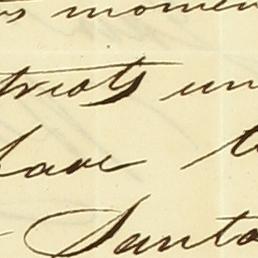 momen
triots un
have t
Santa